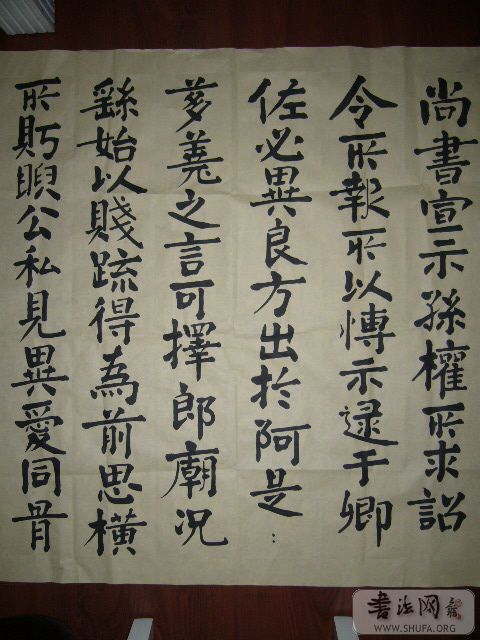 尚書宣示孫權所求詔
令所報所以愽示逮于卿
佐必異良方出於阿是
芻蕘之言可擇郎廟況
繇始以賤疏得為前思橫
所眄睨公私見異愛同骨
書法网
WWW.SHUFA.ORG